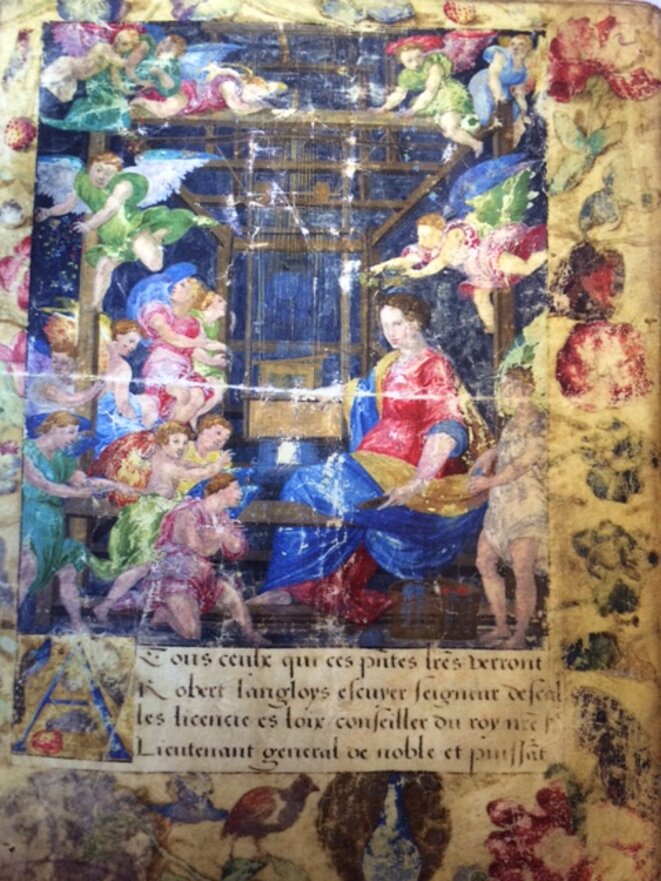 A Tous ceulx qui ces pñtes lrēs verront
Robert langloys escuyer seigneur descal
les licencie es loix conseiller du roy nrē
Lieutenant general de noble et puissāt